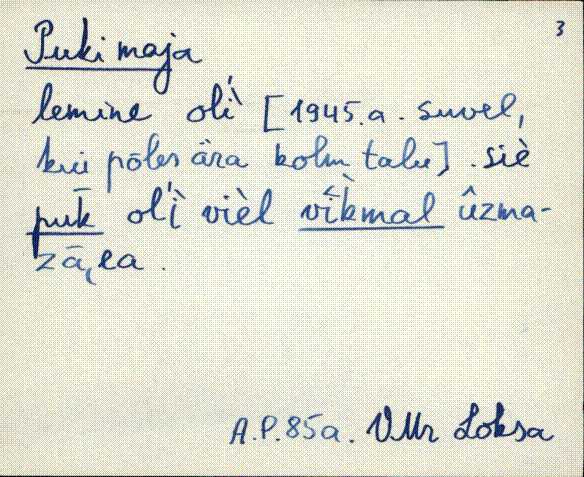 3
Puki maja
lemine oĺì [1945.a. suvel,
kui põles ära kolm talu]. siè
pūk oĺì vièl vìkmal ûzma-
zā,ea.
A.P. 85a. VMr Loksa